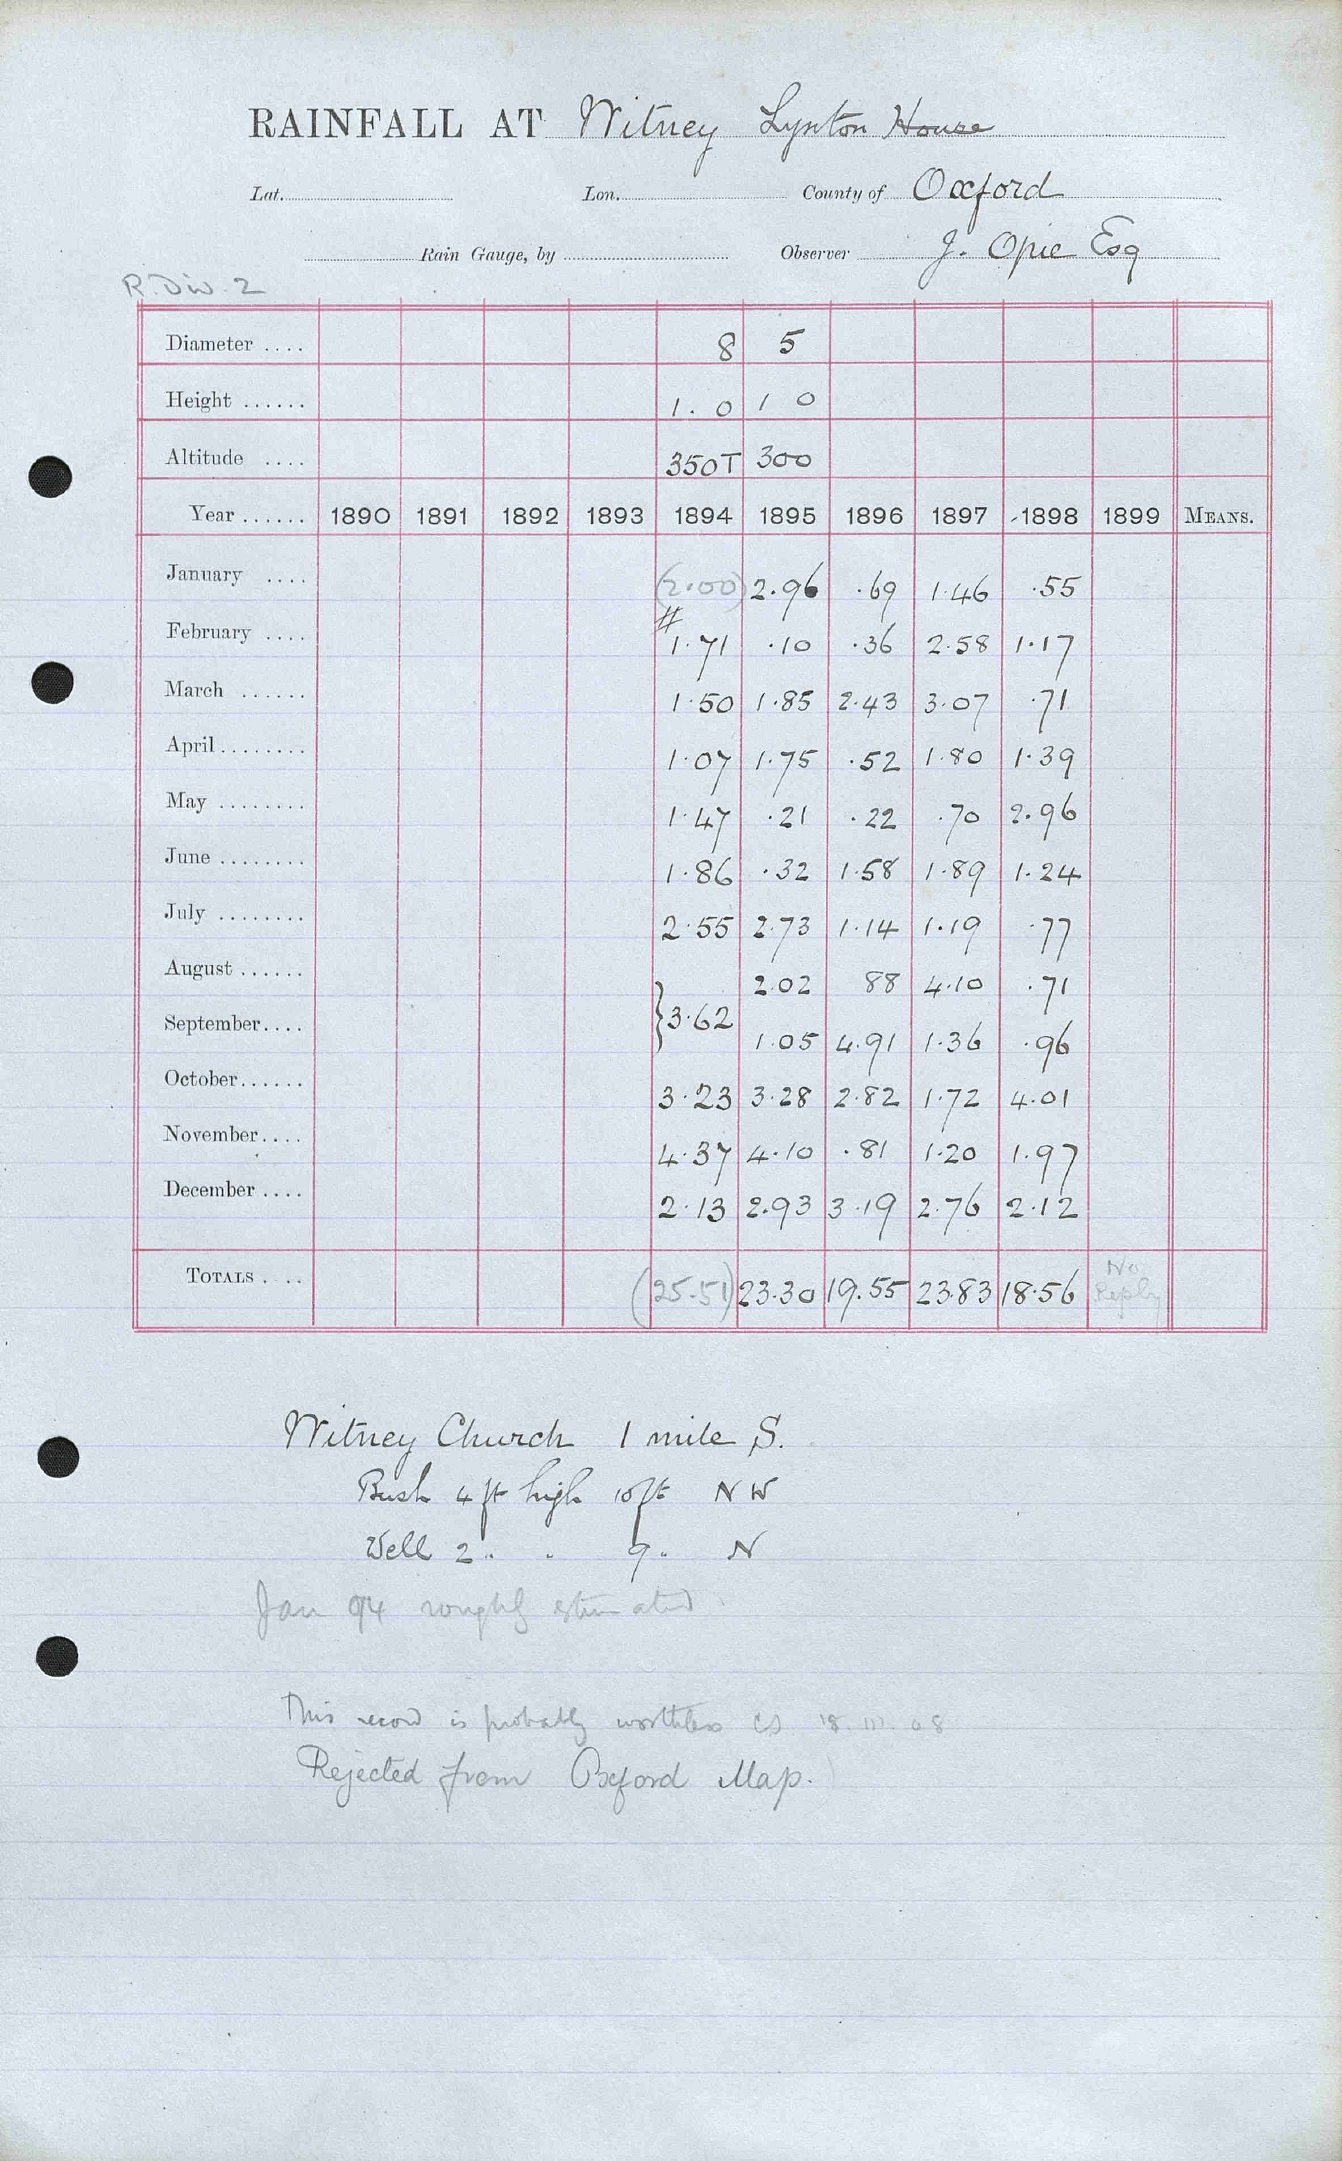 RAINFALL AT Witney Lynton House
Lat. Lon. County of Oxford
Rain Gauge, by Observer J. Opie Esq
R. Div. 2
Diameter .... 8 5
Height ...... 1. 0 1 0
Altitude .... 350T 300
Year ...... 1890 1891 1892 1893 1894 1895 1896 1897 1898 1899 MEANS.
January .... (2.00) 2.96 .69 1.46 .55
February .... # 1.71 .10 .36 2.58 1.17
March ...... 1.50 1.85 2.43 3.07 .71
April ........ 1.07 1.75 .52 1.80 1.39
May ........ 1.47 .21 .22 .70 2.96
June ........ 1.86 .32 1.58 1.89 1.24
July ........ 2.55 2.73 1.14 1.19 .77
August ...... 2.02 88 4.10 .71
September.... }3.62 1.05 4.91 1.36 .96
October...... 3.23 3.28 2.82 1.72 4.01
November.... 4.37 4.10 .81 1.20 1.97
December .... 2.13 2.93 3.19 2.76 2.12
TOTALS .... (25.51) 23.30 19.55 23.83 18.56 No Reply
Witney Church 1 mile S.
Bush 4 ft high 10ft NW
Well 2 " " 9 " N
Jan 94 roughly estimated
This record is probably worthless 18.III.08
Rejected from Oxford Map.